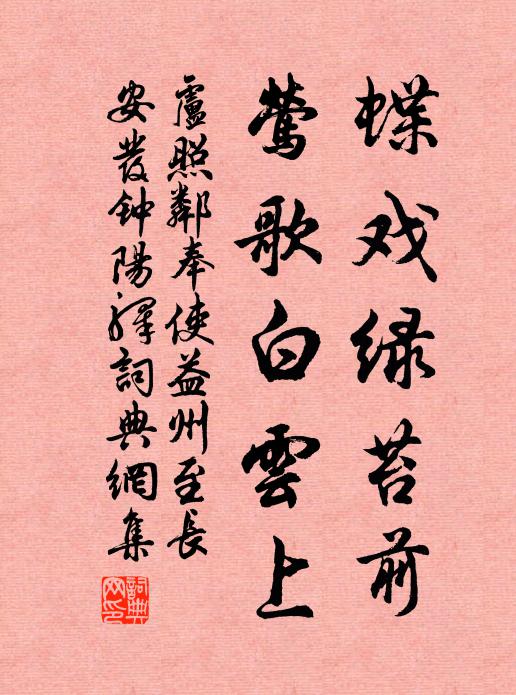 蝶戏绿苔前
莺歌白雲上
盧照鄰奉使益州至長
安發钟陽驛詞典網集
詞典
网印